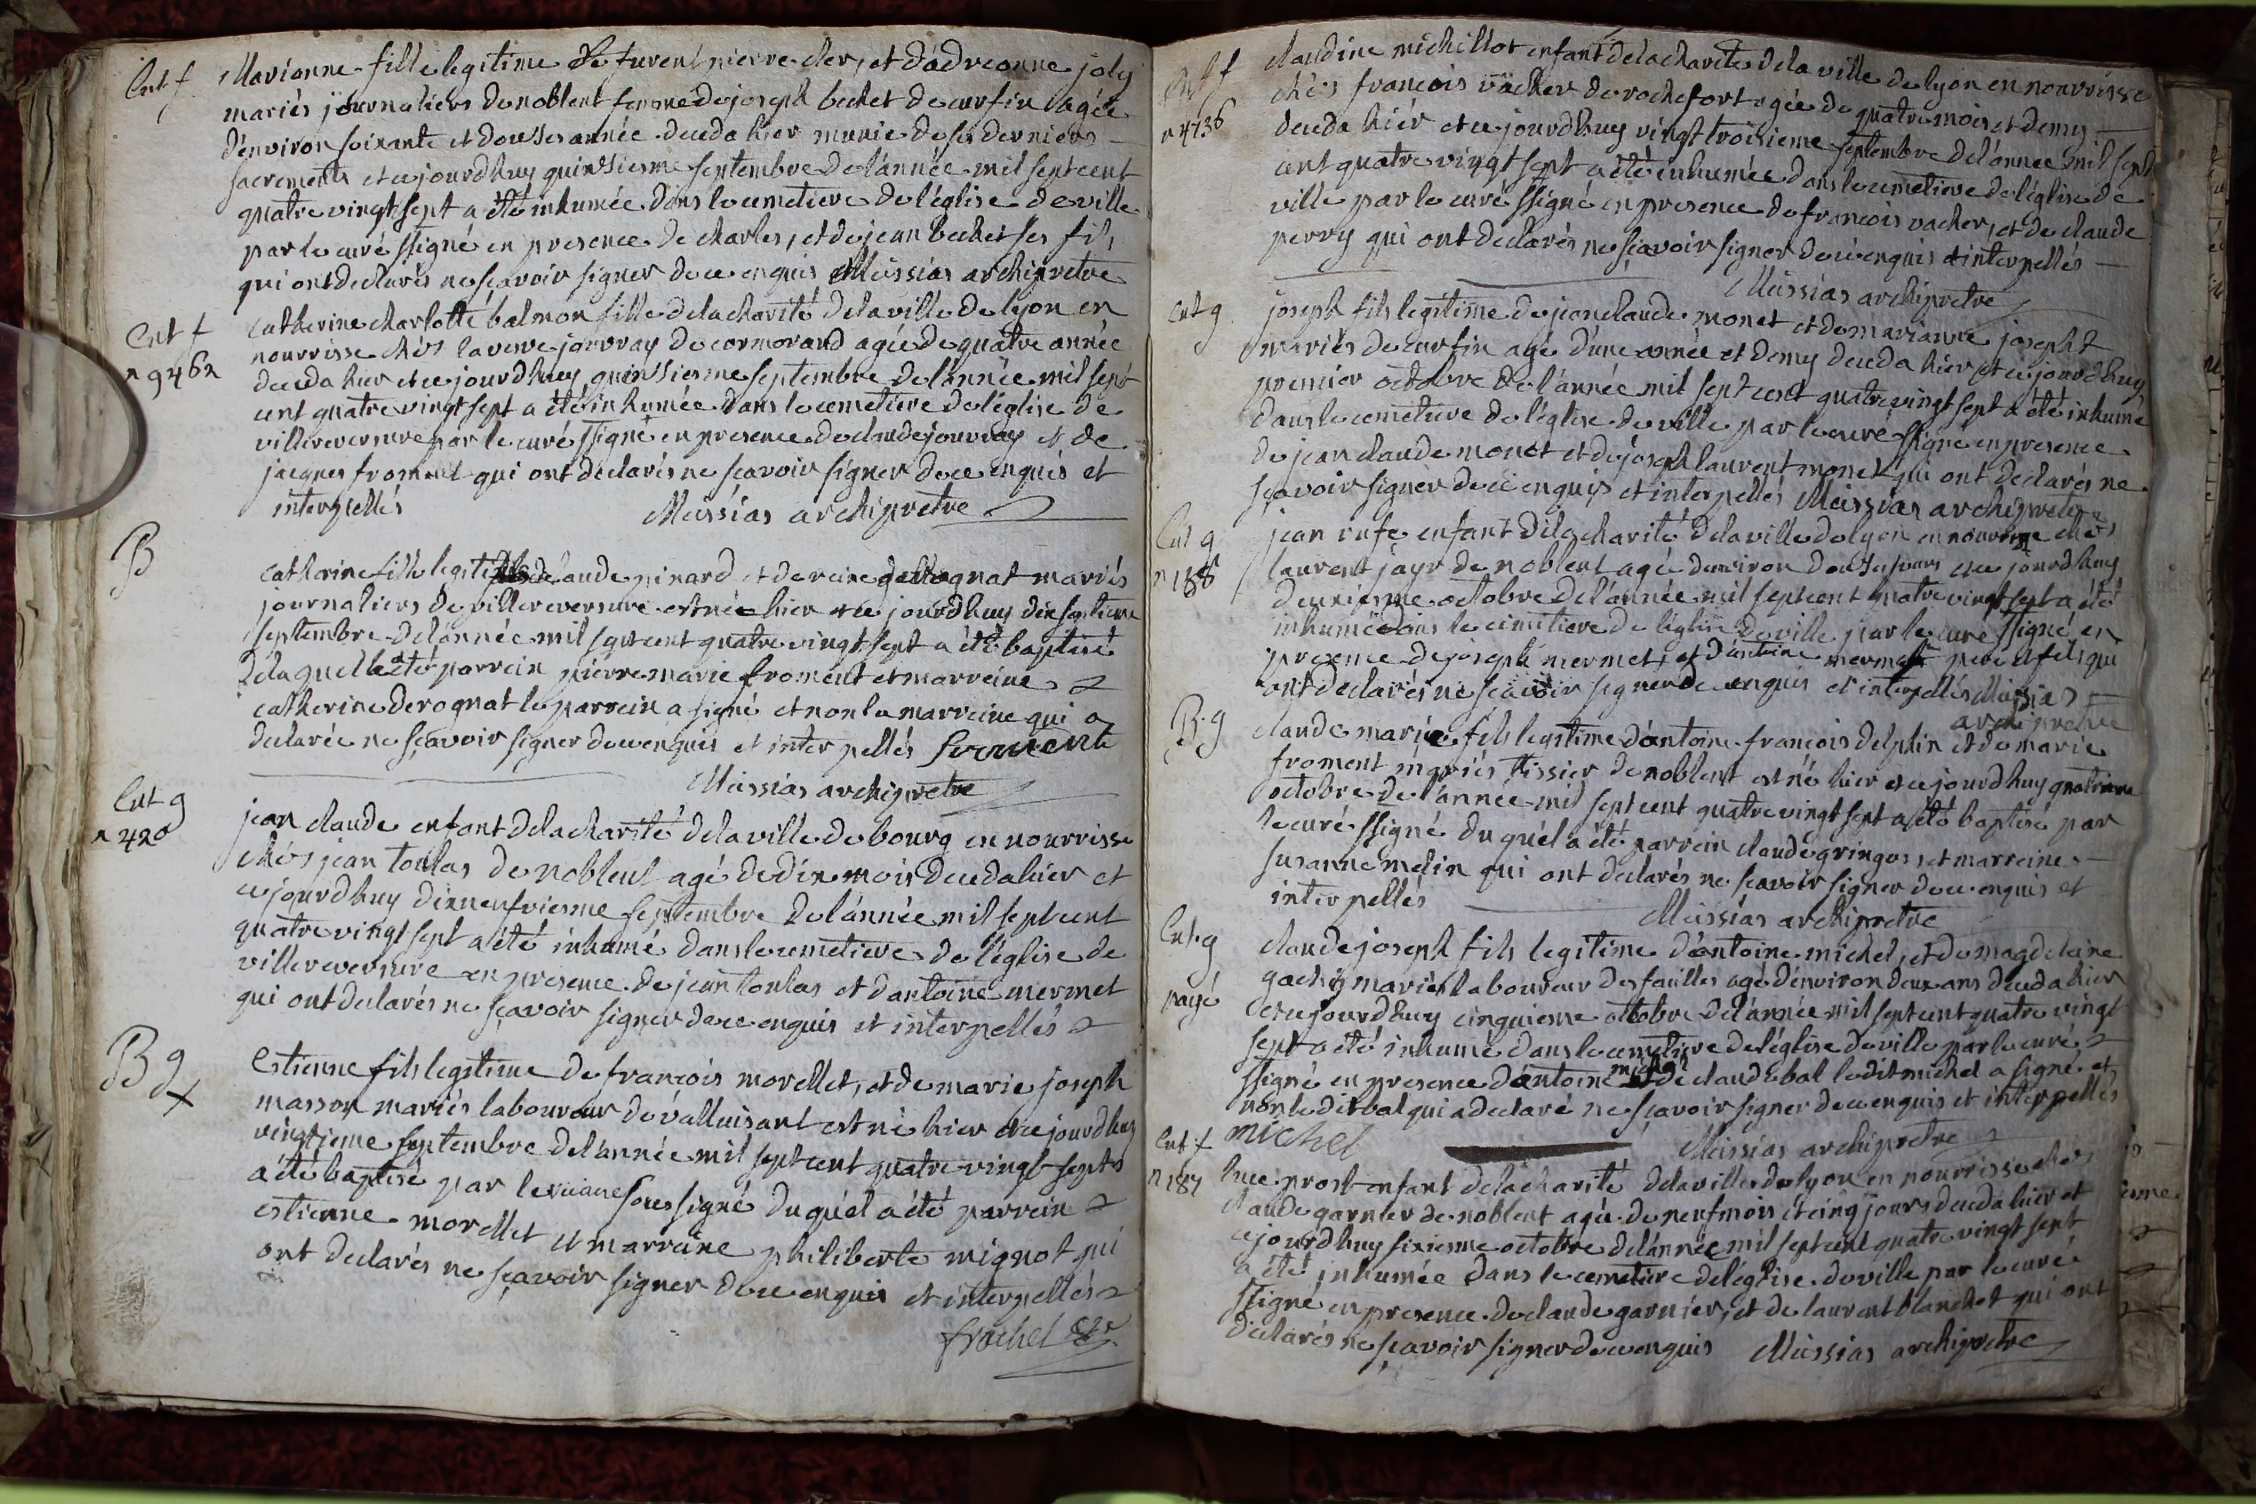 Ent f
Marianne fille legitime de furent pierre cler, et d'adreanne joly
mariés journaliers de noblent femme de joseph bechet de curfin agée
d'environ soixante et douse année decedа hier munie de ses derniers
sacrements et ce jourdhuy quinsiesme septembre de l'année mil sept cent
quatre vingt sept a été inhumée dans le cemetiere de l'église de ville
par le curé ssigné en presence de charles, et de jean bechet ses fils
qui ont declarés ne sçavoir signer de ce enquis Meissias archipretre
Ent f
n 9462
catherine charlotte balmon fille de la charité de la ville de lyon en
nourrisse chés la veuve jouvray de cormorand agée de quatre année
deceda hier et ce jourdhuy quinsiesme septembre de l'année mil sept
cent quatre vingt sept a été inhumée dans le cemetiere de l'église de
villereversure par le curé ssigné en presence de claude jouvray et de
jacques froment qui ont declarés ne scavoir signer de ce enquis et
interpellés Meissias archipretre
B
catherine fille legitime de claude pinard et de reine derognat mariés
journaliers de villereversure est née hier et ce jourdhuy dix septieme
septembre de l'année mil sept cent quatre vingt sept a été baptisé
de laquelle a été parrein pierre marie froment et marreine
catherine derognat le parrein a signé et non la marreine qui a
declarée ne sçavoir signer de ce enquis et interpellés froment
Meissias archipretre
Ent g
n 420
jean claude enfant de la charité de la ville de bourg en nourrisse
chés jean toulas de noblent agé de dix mois deceda hier et
ce jourdhuy dixneufviesme septembre de l'année mil sept cent
quatre vingt sept a été inhumé dans le cemetiere de l'église de
villereversure en presence de jean toulas et d'antoine mermet
qui ont declarés ne sçavoir signer de ce enquis et interpellés
B g
x
Estienne fils legitime de françois morellet, et de marie joseph
masson mariés laboureur de valluisant est né hier et ce jourdhuy
vingtieme septembre de l'année mil sept cent quatre vingt sept
a été baptisé par le vicaire soussigné duquél a été parrein
estienne morellet et marraine philiberte mignot qui
ont declarés ne sçavoir signer de ce enquis et interpellés
frachet
Ent f
n 4736
claudine michillot enfant de la charité de la ville de lyon en nourrisse
chés francois vacher de rochefort agée de quatre mois et demy
deceda hier et ce jourdhuy vingt troisieme septembre de l'année mil sept
cent quatre vingt sept a été inhumée dans le cemetiere de l'église de
ville par le curé ssigné en presence de francois vacher, et de claude
perry qui ont declarés ne sçavoir signer de ce enquis et interpellés
Meissias archipretre
Ent g
joseph fils legitime de jean claude monet et de marianne josepht
mariés de curfin agé d'une année et demy deceda hier et ce jourdhuy
premier octobre de l'année mil sept cent quatre vingt sept a été inhumé
dans le cemetiere de l'église de ville par le curé ssigné en presence
de jean claude monet et de joseph laurent monet qui ont declarés ne
sçavoir signer de ce enquis et interpellés Meissias archipretre
Ent g
n 188
jean rufe enfant de la charité de la ville de lyon en nourrisse chés
laurent jayr de noblent agé denviron douse jours et ce jourdhuy
deuxiesme octobre de l'année mil sept cent quatre vingt sept a été
inhumé dans le cimetiere de l'église de ville par le curé ssigné en
presence de joseph mermet, et d'antoine mermet pere et fils qui
ont declarés ne scavoir signer de ce enquis et interpellés Meissias
archipretre
B g
claude marie fils legitime d'antoine françois delphin et de marie
froment mariés tissier de noblent est né hier et ce jourdhuy quatrieme
octobre de l'année mil sept cent quatre vingt sept a été baptisé par
le curé ssigné duquél a été parrein claude gringos, et marreine
susanne melin qui ont declarés ne scavoir signer de ce enquis et
interpellés Meissias archipretre
Ent g
payé
claude joseph fils legitime d'antoine michel, et de magdeleine
gachy mariés laboureur des failles agé d'environ deux ans deceda hier
et ce jourdhuy cinquieme octobre de l'année mil sept cent quatre vingt
sept a été inhumé dans le cemetiere de l'église de ville par le curé
ssigné en presence d'antoine michel et de claude bal le dit michel a signé et
non le dit bal qui a declaré ne sçavoir signer de ce enquis et interpellés
michel Meissias archipretre
Ent f
n 187
luce prost enfant de la charité de la ville de lyon en nourrisse chés
claude garnier de noblent agée de neuf mois et cinq jours deceda hier et
ce jourdhuy sixiesme octobre de l'année mil sept cent quatre vingt sept
a été inhumée dans le cemetiere de l'église de ville par le curé
ssigné en presence de claude garnier, et de laurent blanchet qui ont
declarés ne sçavoir signer de ce enquis Meissias archipretre